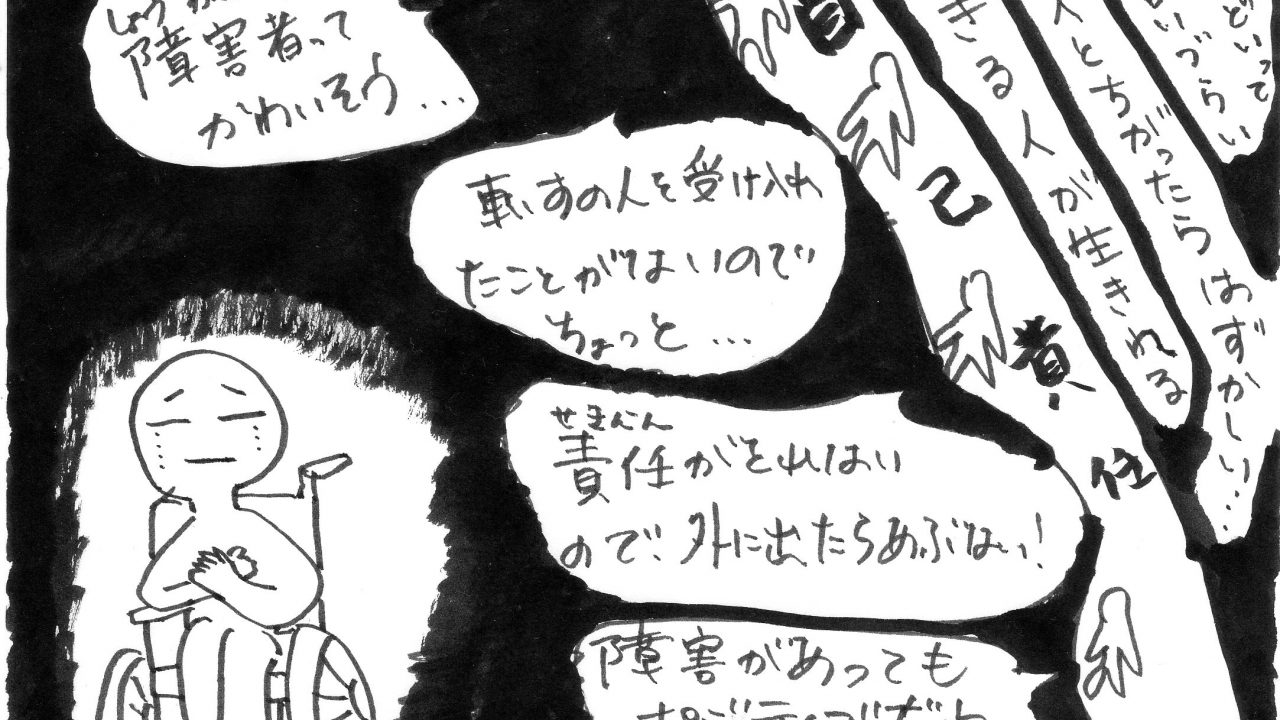 しょうが
障害者って
かわいそう…
車いすの人を受け入れ
たことがないので
ちょっと…
せきにん
責任がとれない
ので、外に出たらあぶない!
障害があっても
自己責任
きる人が生きれる
人とちがったらはずかしい…
いづらい
どいって